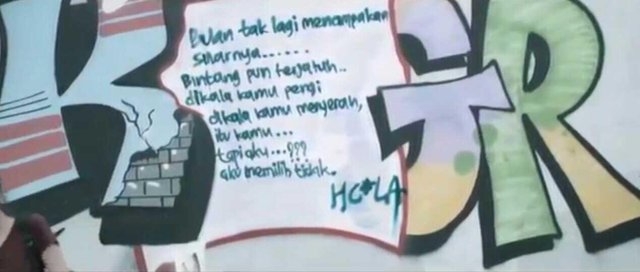 Bulan tak lagi menampakan
sinarnya......
Bintang pun terjatuh..
dikala kamu pergi
dikala kamu menyerah,
itu kamu...
tapi aku...???
aku memilih tidak.
HC*LA
K
GR